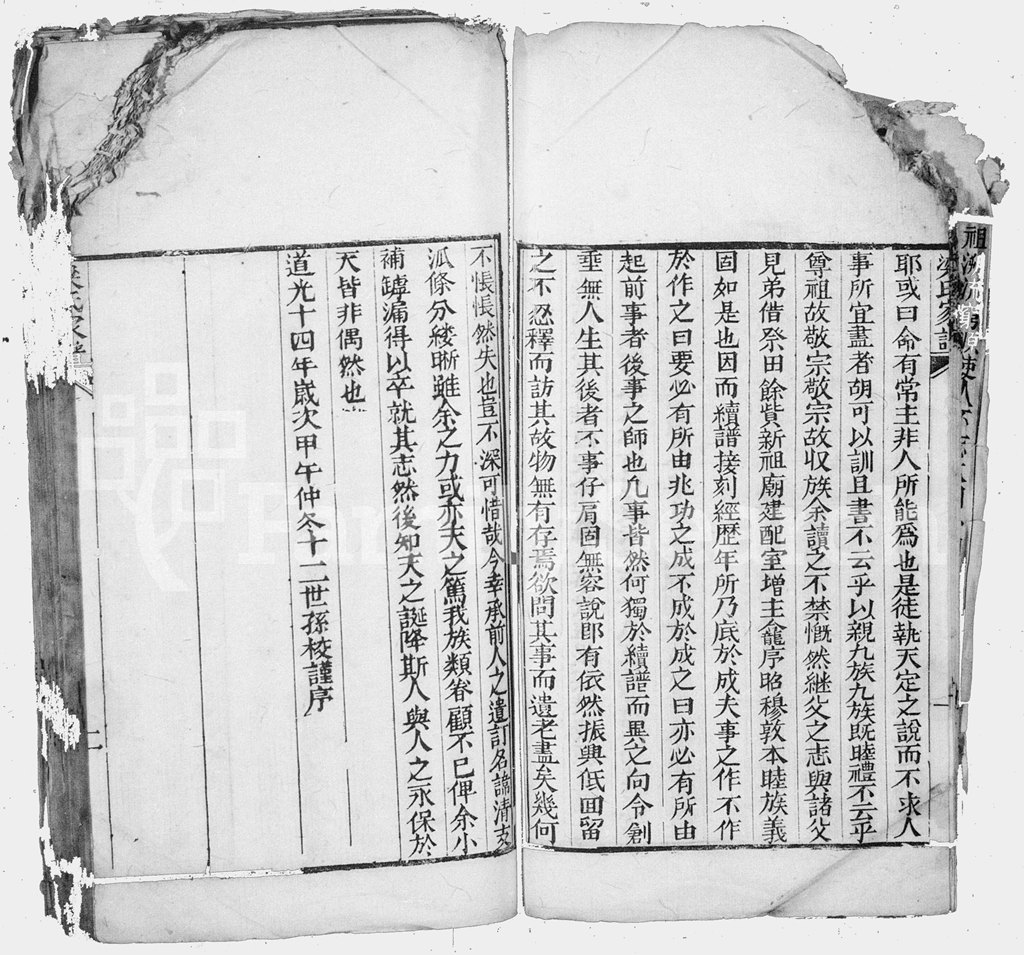 梁氏家譜
耶或曰命有常主非人所能爲也是徒執天定之說而不求人
事所宜盡者胡可以訓且書不云乎以親九族九族既睦禮不云乎
尊祖故敬宗敬宗故収族余讀之不禁慨然継父之志與諸父
見弟借祭田餘貲新祖廟建配室增主龕序昭穆敦本睦族義
固如是也因而續譜接刻經歴年所乃底於成夫事之作不作
於作之曰要必有所由兆功之成不成於成之曰亦必有所由
起前事者後事之師也凢事皆然何獨於續譜而異之向令創
垂無人生其後者不事仔肩固無容說即有依然振興低回留
之不忍釋而訪其故物無有存焉欲問其事而遺老盡矣幾何
不悵悵然失也豈不深可惜哉今幸承前人之遺訂名諱清支
派條分縷晰雖余之力或亦天之篤我族類眷顧不已俾余小
補罅漏得以卒就其志然後知天之誕降斯人與人之永保於
天皆非偶然也
道光十四年歲次甲午仲冬十二世孫校謹序